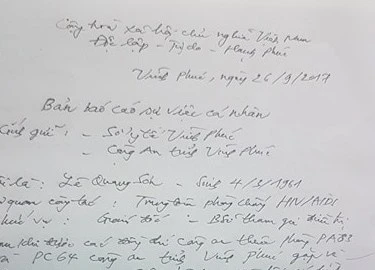 Cộng hoà xã hội chủ nghĩa Việt Nam
Độc lập - Tự do - Hạnh phúc
Vĩnh Phúc, ngày 26/9/2017
Bản báo cáo sự việc cá nhân
Kính gửi: - Sở y tế Vĩnh Phúc
- Công An tỉnh Vĩnh Phúc
Tôi là: Lê Quang Sơn - Sinh 4/3/1961
quan công tác: Trung tâm phòng chống HIV/AIDS
Chức vụ: Giám đốc - Bác sĩ tham gia điều trị
khi được các đồng chí công an thêm phòng PA83
và PC64 công an tỉnh Vĩnh Phúc gặp